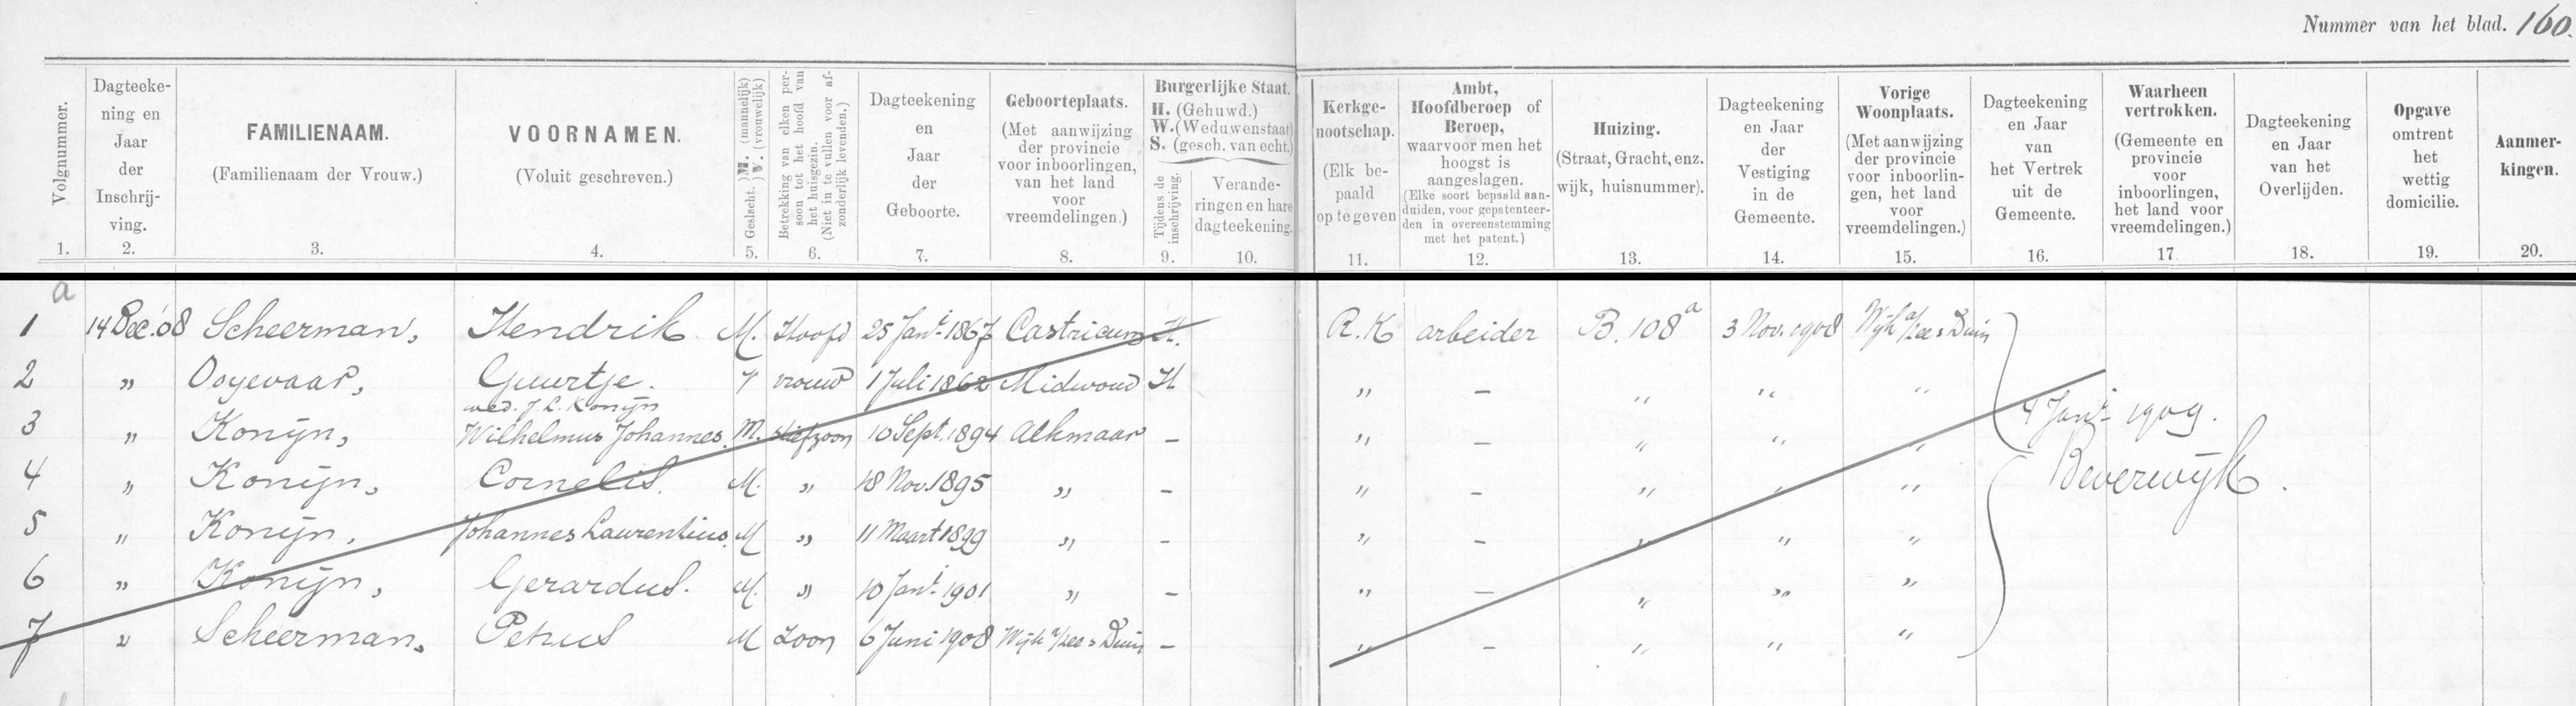 Nummer van het blad. 160.
Volgnummer. 1.
Dagteekening en Jaar der Inschrijving. 2.
FAMILIENAAM. (Familienaam der Vrouw.) 3.
VOORNAMEN. (Voluit geschreven.) 4.
Geslacht. M. (mannelijk) V. (vrouwelijk) 5.
Betrekking van elken persoon tot het hoofd van het huisgezin. (Niet in te vullen voor afzonderlijk levenden.) 6.
Dagteekening en Jaar der Geboorte. 7.
Geboorteplaats. (Met aanwijzing der provincie voor inboorlingen, van het land voor vreemdelingen.) 8.
Burgerlijke Staat. H. (Gehuwd.) W. (Weduwenstaat) S. (gesch. van echt.)
Tijdens de inschrijving. 9.
Veranderingen en hare dagteekening. 10.
Kerkgenootschap. (Elk bepaald op te geven 11.
Ambt, Hoofdberoep of Beroep, waarvoor men het hoogst is aangeslagen. (Elke soort bepaald aanduiden, voor gepatenteerden in overeenstemming met het patent.) 12.
Huizing. (Straat, Gracht, enz. wijk, huisnummer). 13.
Dagteekening en Jaar der Vestiging in de Gemeente. 14.
Vorige Woonplaats. (Met aanwijzing der provincie voor inboorlingen, het land voor vreemdelingen.) 15.
Dagteekening en Jaar van het Vertrek uit de Gemeente. 16.
Waarheen vertrokken. (Gemeente en provincie voor inboorlingen, het land voor vreemdelingen.) 17.
Dagteekening en Jaar van het Overlijden. 18.
Opgave omtrent het wettig domicilie. 19.
Aanmerkingen. 20.
a
1 14 Dec. '08 Scheerman, Hendrik M. Hoofd 25 Jan. 1867 Castricum H. R.K arbeider B. 108a 3 Nov. 1908 Wijk a/Zee & Duin
2 " Ooyevaar, Guurtje. V vrouw 1 Juli 1862 Midwoud H " - " " "
wed. J. L. Konijn
3 " Konijn, Wilhelmus Johannes. M. stiefzoon 10 Sept. 1894 Alkmaar - " - " " " 4 Jan. 1909.
4 " Konijn, Cornelis. M. " 18 Nov. 1895 " - " - " " " Beverwijk.
5 " Konijn, Johannes Laurentius. M " 11 Maart 1899 " - " - " " "
6 " Konijn, Gerardus. M. " 10 Jan. 1901 " - " - " " "
7 " Scheerman. Petrus M Zoon 6 Juni 1908 Wijk a/Zee & Duin - " - " " "